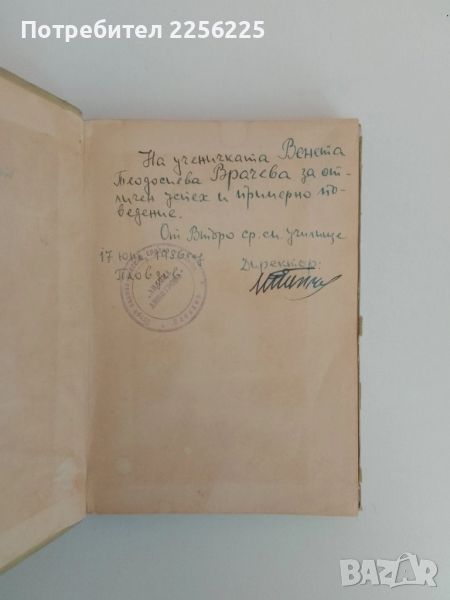 Потребител 2256225
На ученичката Венета
Теодосиева Врачева за от-
личен успех и примерно по-
ведение.
От Второ ср. см. училище
17 юни 1956 год.
Директор:
Пловдив
BAZAR